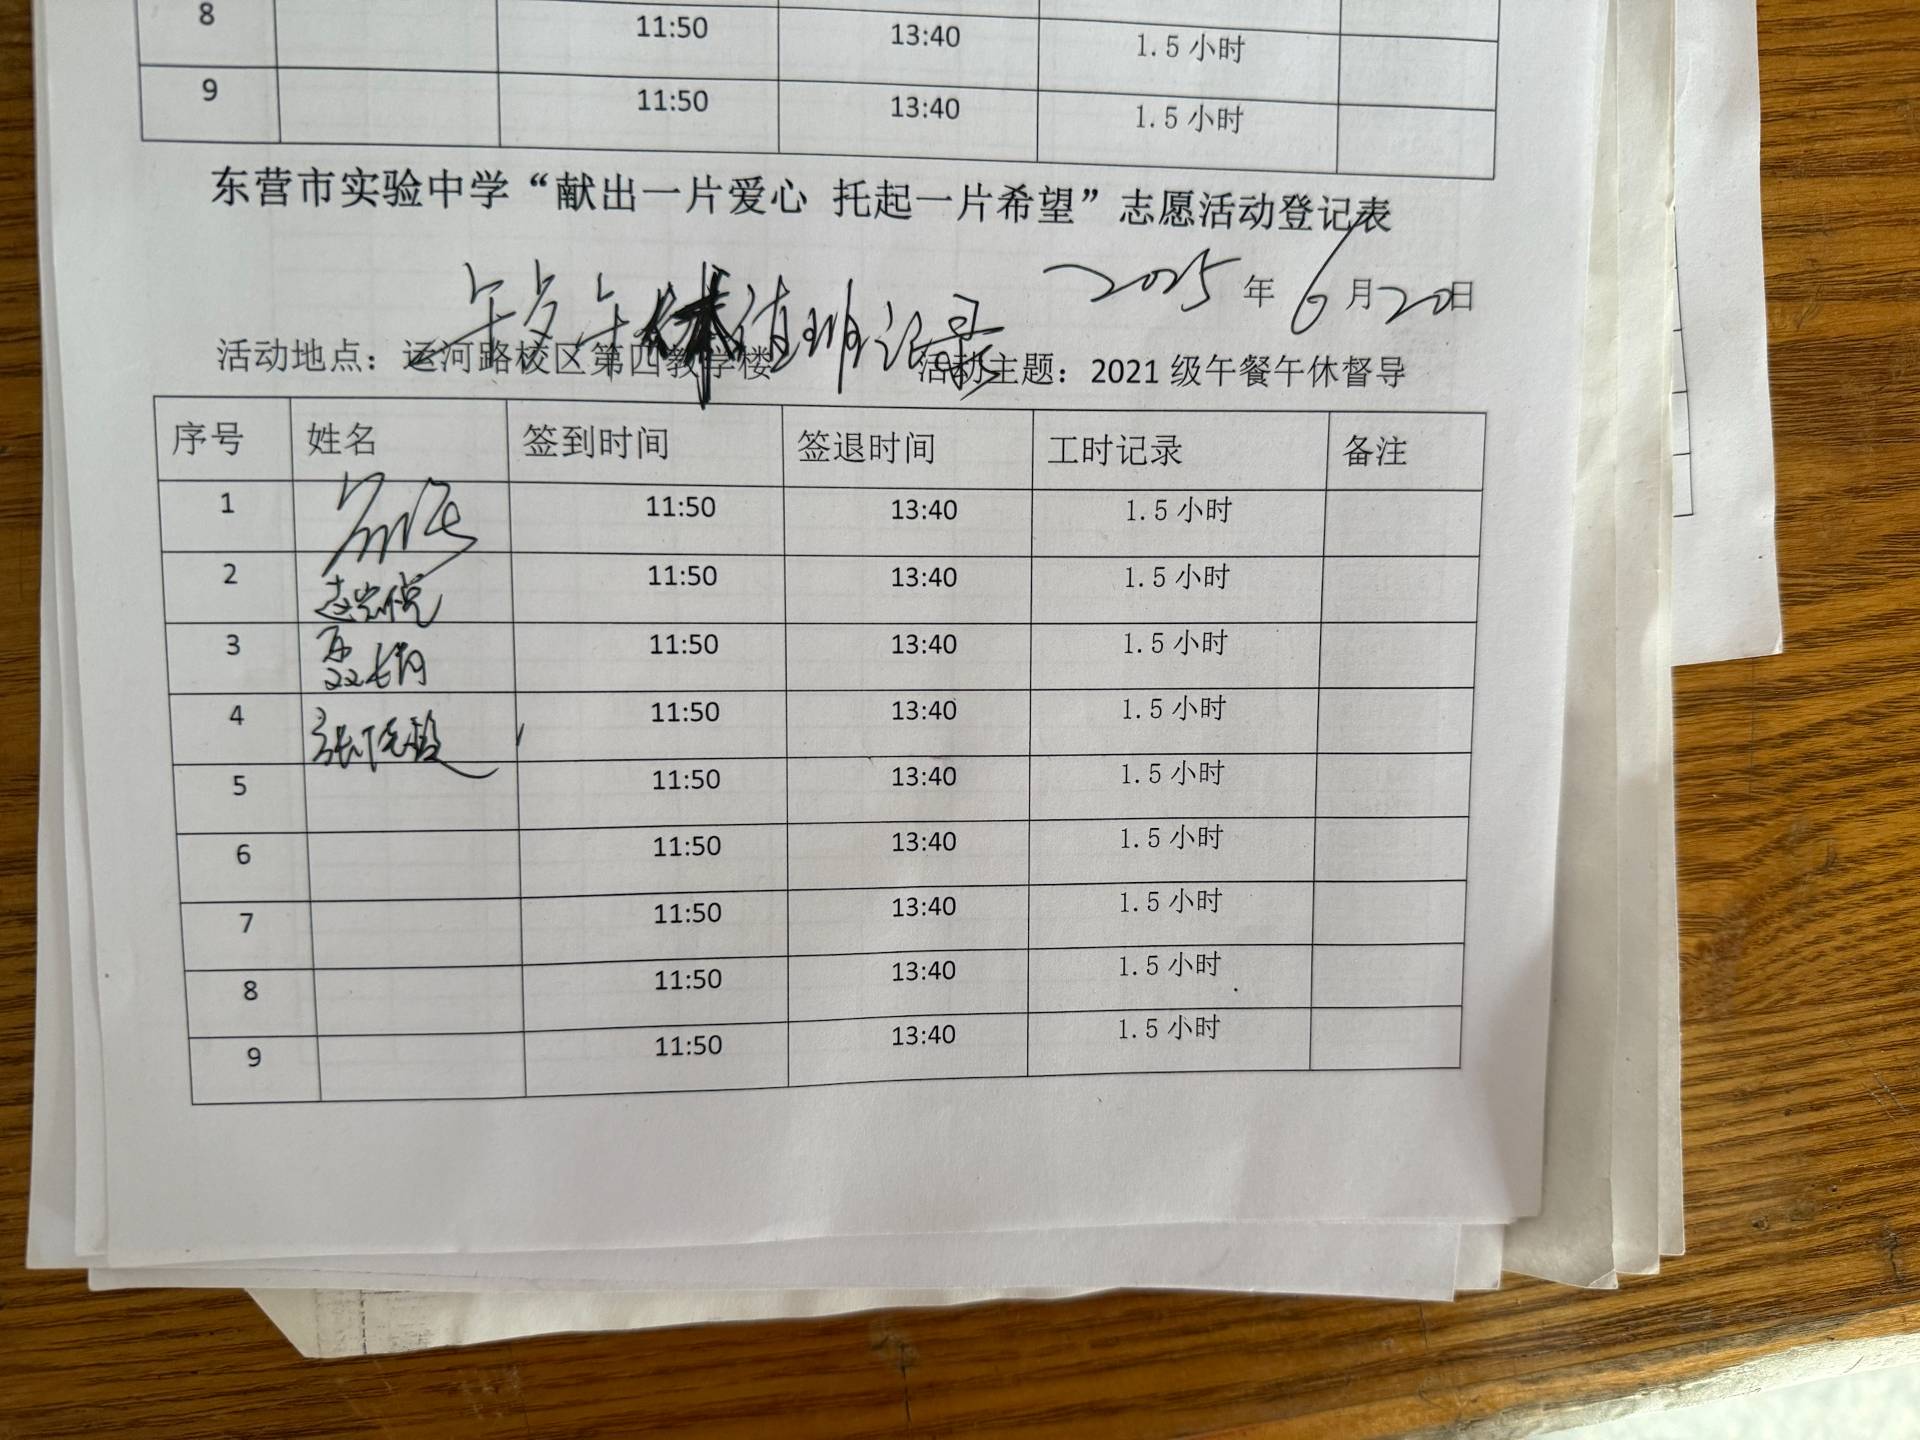 8 11:50 13:40 1.5 小时
9 11:50 13:40 1.5 小时
东营市实验中学“献出一片爱心 托起一片希望”志愿活动登记表
午休值班记录 2025 年 6 月 20 日
活动地点：运河路校区第四教学楼 活动主题：2021 级午餐午休督导
序号 姓名 签到时间 签退时间 工时记录 备注
1 11:50 13:40 1.5 小时
2 11:50 13:40 1.5 小时
3 11:50 13:40 1.5 小时
4 11:50 13:40 1.5 小时
5 11:50 13:40 1.5 小时
6 11:50 13:40 1.5 小时
7 11:50 13:40 1.5 小时
8 11:50 13:40 1.5 小时
9 11:50 13:40 1.5 小时